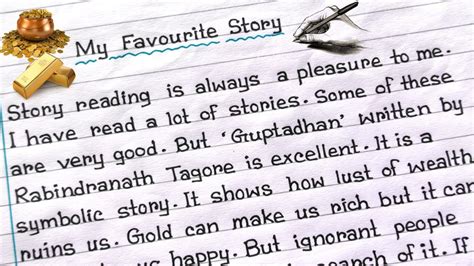 My Favourite Story
Story reading is always a pleasure to me.
I have read a lot of stories. Some of these
are very good. But 'Gruptadhan' written by
Rabindranath Tagore is excellent. It is a
symbolic story. It shows how lust of wealth
ruins us. Gold can make us rich but it can
us happy. But ignorant people
search of it. If